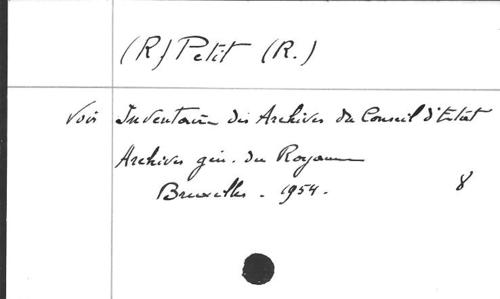 (R) Petit (R.)
Voir Inventaire des Archives du Conseil d'Etat
Archives gén. du Royaume
Bruxelles - 1954.
8